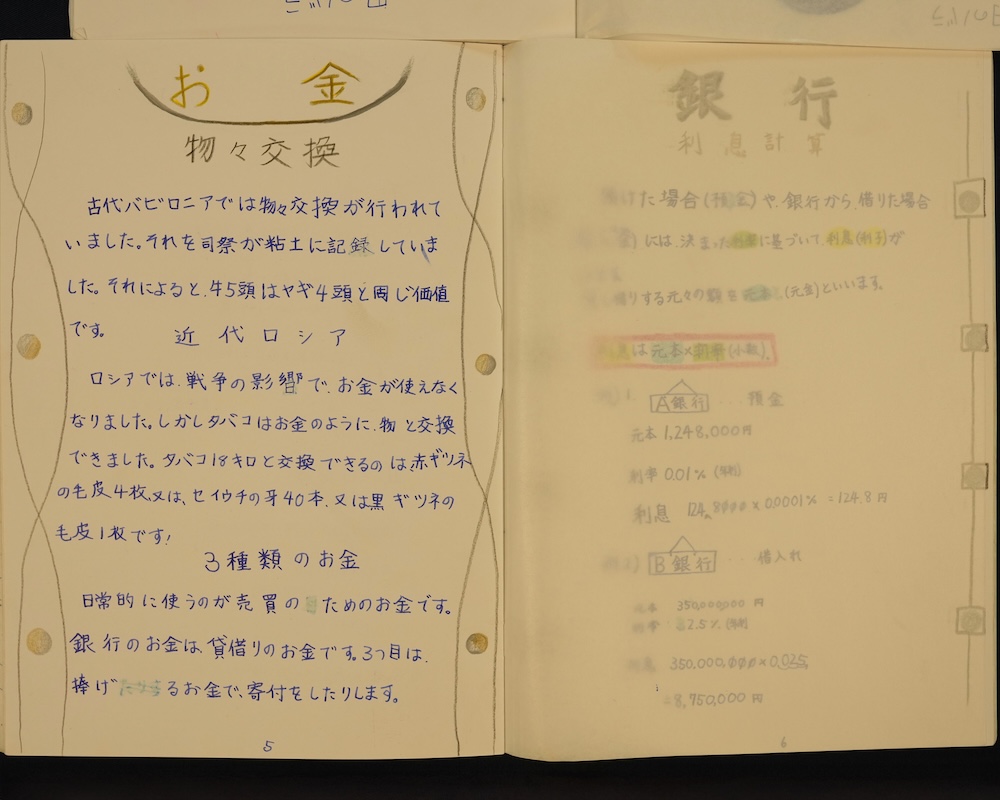 お金
物々交換
古代バビロニアでは物々交換が行われて
いました。それを司祭が粘土に記録していま
した。それによると、牛5頭はヤギ4頭と同じ価値
です。
近代ロシア
ロシアでは、戦争の影響で、お金が使えなく
なりました。しかしタバコはお金のように、物と交換
できました。タバコ18キロと交換できるのは赤ギツネ
の毛皮4枚、又は、セイウチの牙40本、又は黒ギツネの
毛皮1枚です!
3種類のお金
日常的に使うのが売買の ためのお金です。
銀行のお金は、貸借りのお金です。3つ目は、
捧げ るお金で、寄付をしたりします。
5
銀行
利息計算
けた場合(預金)や、銀行から、借りた場合
には、決まった利率に基づいて、利息(利子)が
借りする元々の額を元本、(元金)といいます。
利息は元本×利率(小数)。
A銀行 … 預金
元本 1,248,000円
利率 0.01% (年利)
利息 124,8000×0.0001% =124.8円
B銀行 … 借入れ
元本 350,000,000円
利率 2.5% (年利)
利息 350,000,000×0.025
=8,750,000円
6